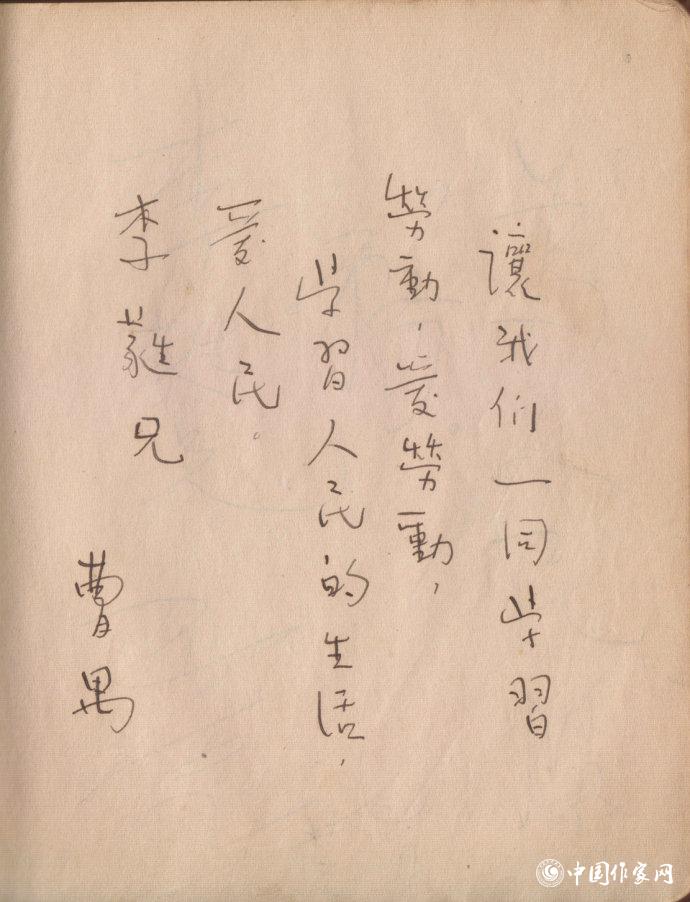 讓我们一同学習
勞動，愛勞動，
学習人民的生活，
愛人民。
李蕤兄
曹禺
中国作家网